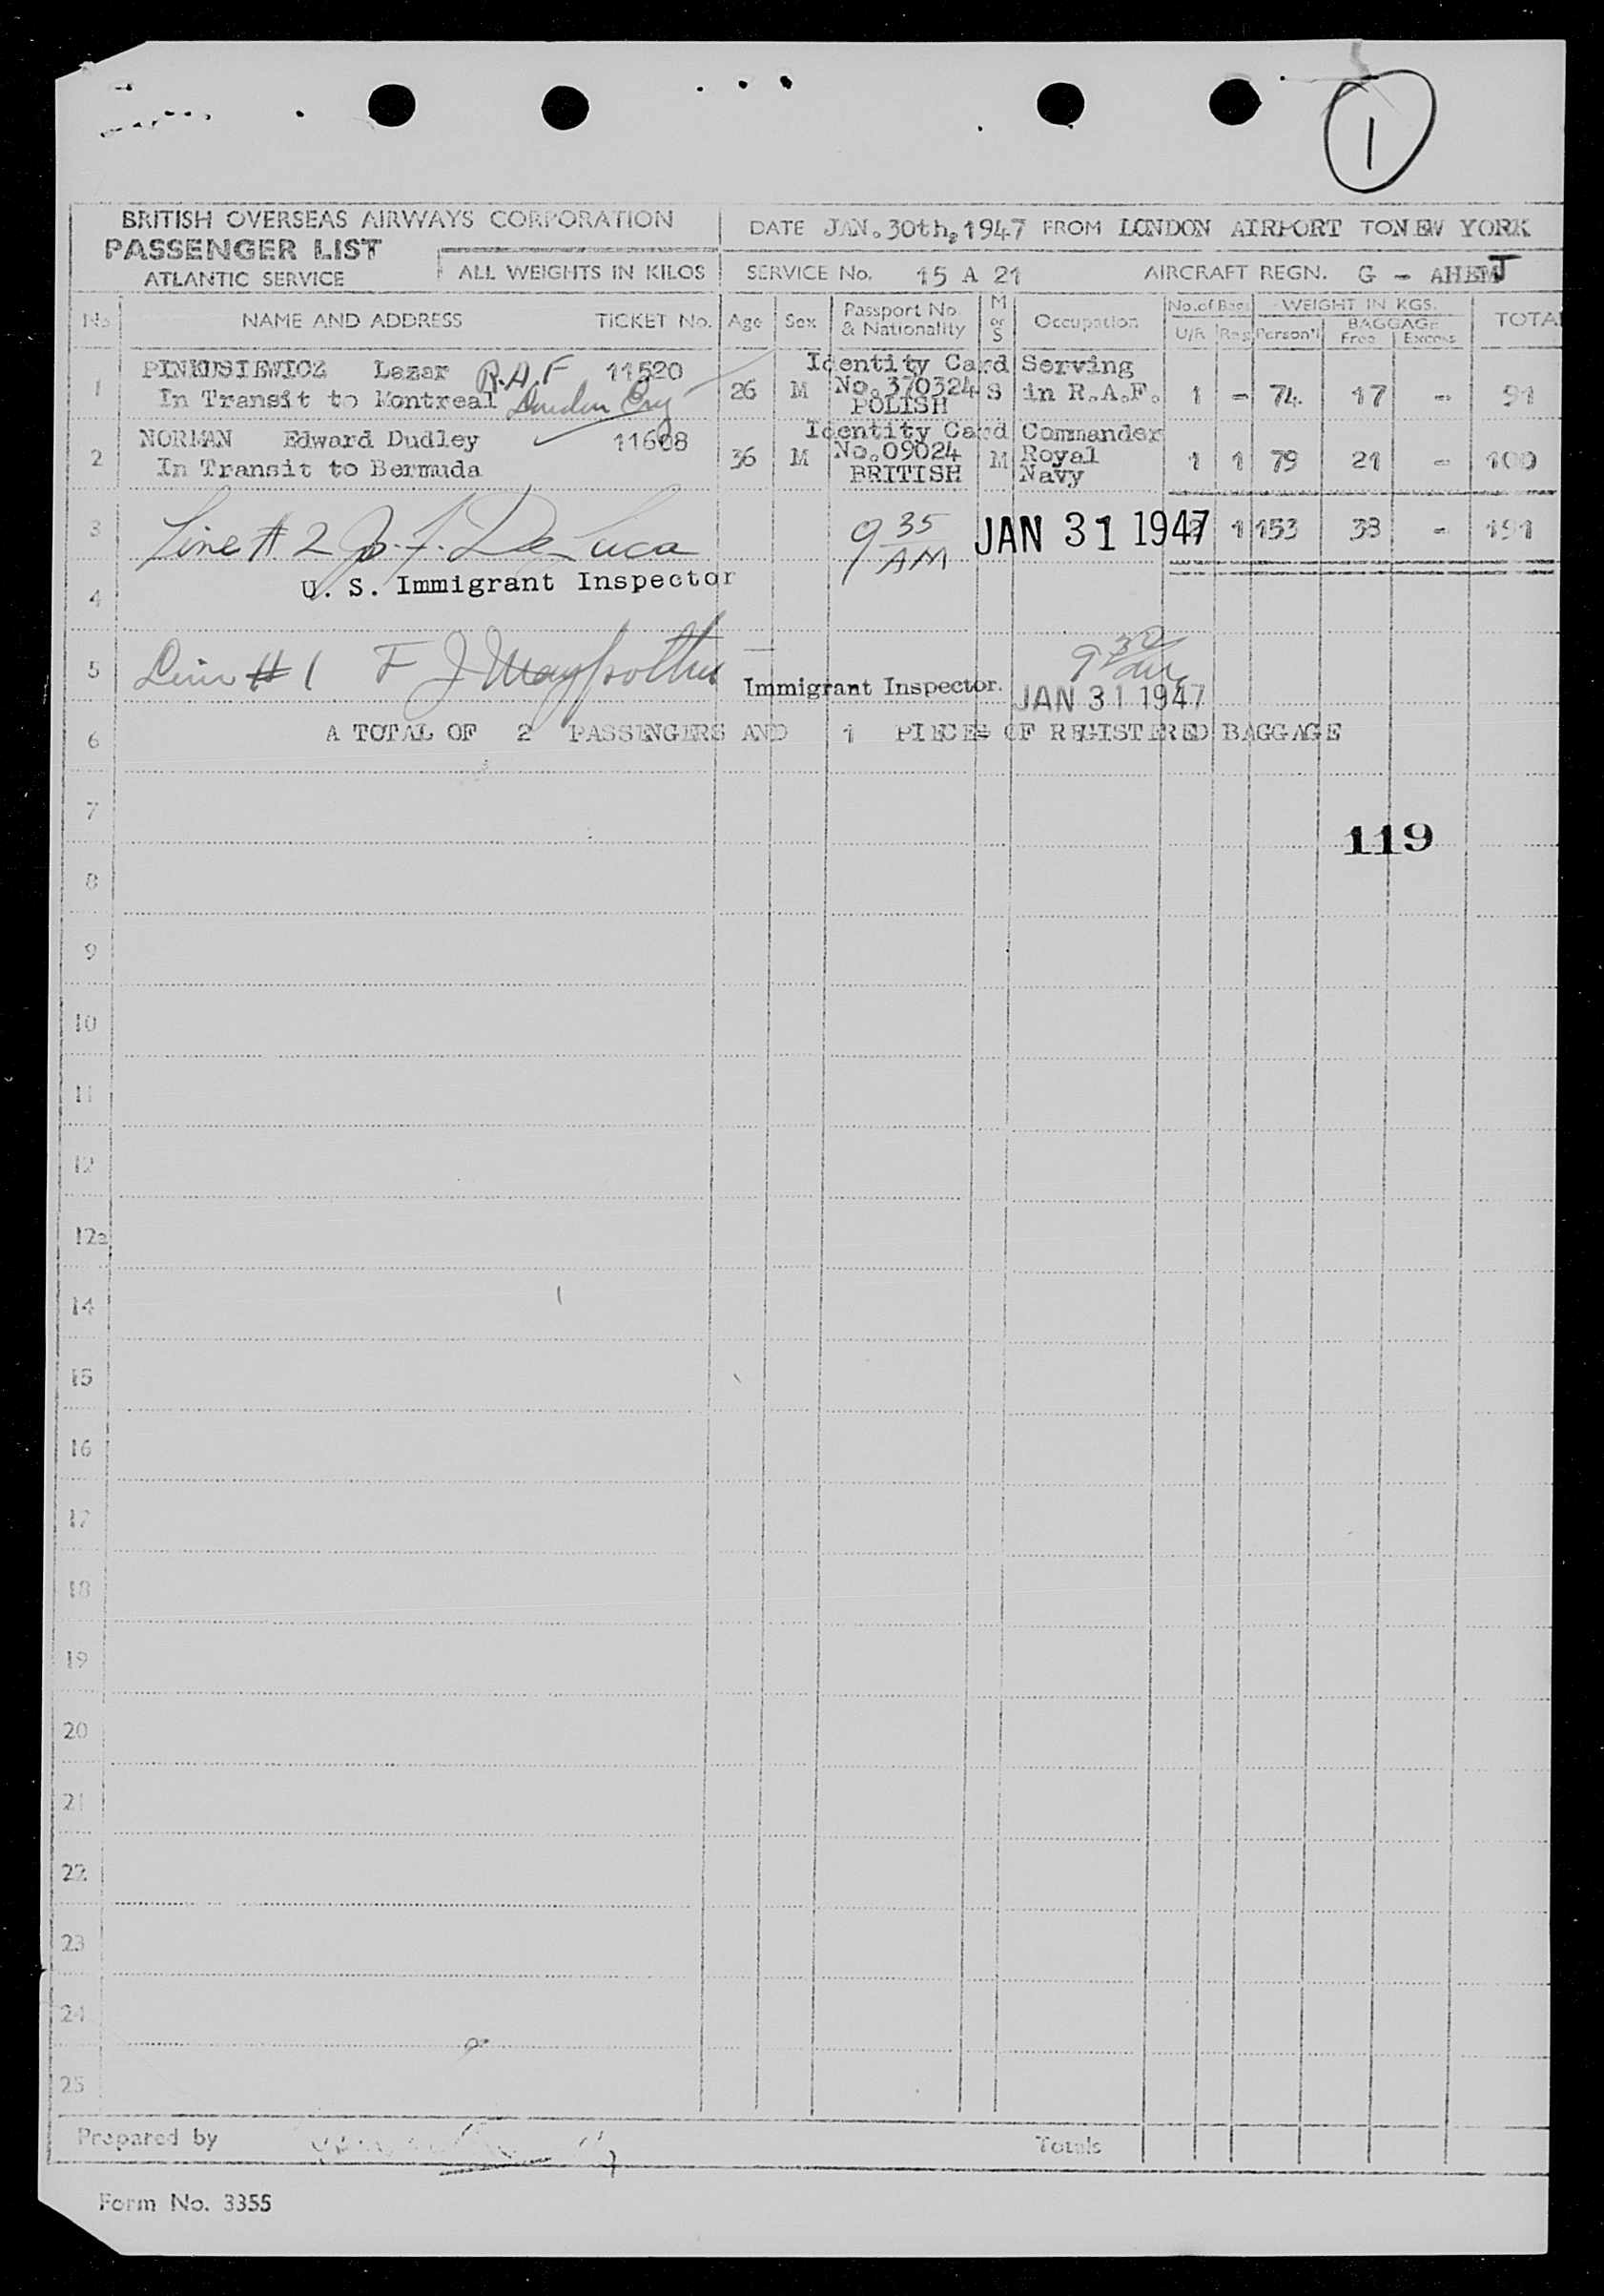 1
BRITISH OVERSEAS AIRWAYS CORPORATION
PASSENGER LIST
ATLANTIC SERVICE
ALL WEIGHTS IN KILOS
DATE JAN. 30th, 1947 FROM LONDON AIRPORT TO NEW YORK
SERVICE No. 15 A 21 AIRCRAFT REGN. G - AHEMJ
No NAME AND ADDRESS TICKET No. Age Sex Passport No & Nationality M or S Occupation No. of Bags U/R Reg WEIGHT IN KGS. Person'l BAGGAGE Free Excess TOTAL
1 PINKUSIEWICZ Lazar R.A.F 11520 26 M Identity Card No. 370324 POLISH S Serving in R.A.F. 1 - 74 17 - 91
In Transit to Montreal London Eng
2 NORMAN Edward Dudley 11608 36 M Identity Card No. 09024 BRITISH M Commander Royal Navy 1 1 79 21 - 100
In Transit to Bermuda
3 Line # 2 J. F. De Luca 9 35 AM JAN 31 1947 2 1 153 38 - 191
U. S. Immigrant Inspector
4
5 Line # 1 F J 9 30 am
Immigrant Inspector. JAN 31 1947
6 A TOTAL OF 2 PASSENGERS AND 1 PIECES OF REGISTERED BAGGAGE
7
119
8
9
10
11
12
12a
14
15
16
17
18
19
20
21
22
23
24
25
Prepared by Totals
Form No. 3355